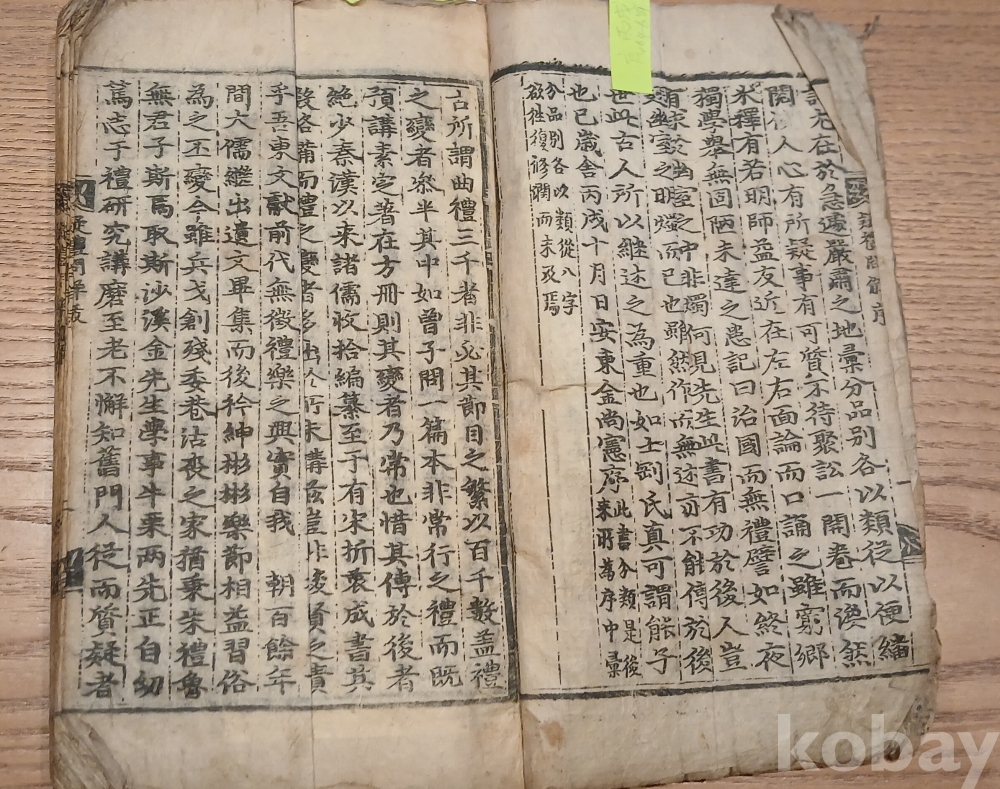 疑禮問解序
討尤在於急遽嚴肅之地彙分品別各以類從以便繙
閱後人心有所疑事有可質不待聚訟一開卷而渙然
氷釋有若明師益友近在左右面論而口誦之雖窮鄉
獨學擧無固陋未達之患記曰治國而無禮譬如終夜
有求幽室之中非燭何見先生此書有功於後人豈
幽室之明燭也雖然作而無述亦不能傳於後
世此古人所以繼述之為重也如士剛氏真可謂能子
也已歲舍丙戌十月日安東金尚憲序此書分類是後
來所為序中彙
分品別各以類從八字
欲往復修潤而未及焉
古所謂曲禮三千者非必其節目之繁以百千數盖禮
之變者叅半其中如曾子問一篇本非常行之禮而既
預講素定著在方冊則其變者乃常也惜其傳於後者
絶少秦漢以来諸儒收拾編纂至于有宋折衷成書其
設各備而禮之變者多出於所未講盖豈非後賢之責
乎吾東文獻前代無徵禮樂之興實自我 朝百餘年
間大儒繼出遺文畢集而後衿紳彬彬樂節相益習俗
為之丕變今雖兵戈創殘委巷沾喪之家猶秉朱禮魯
無君子斯焉取斯沙溪金先生學事牛栗兩先正自幼
篤志于禮研究講磨至老不懈知舊門人從而質疑者
疑禮問解跋